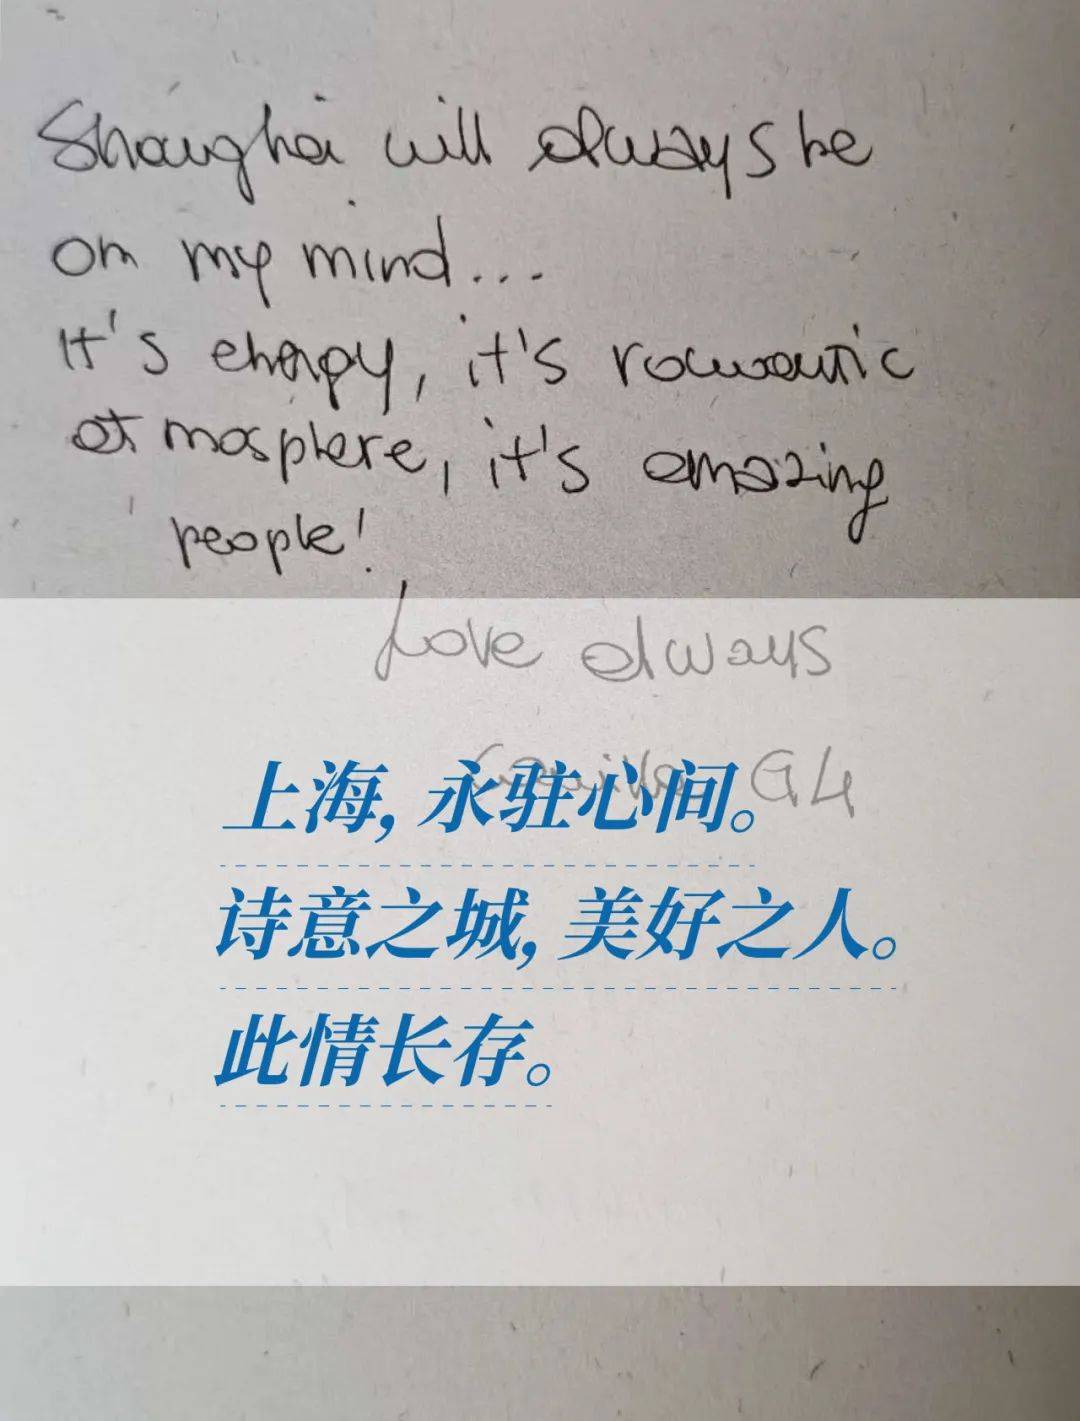 Shanghai will always be
on my mind...
It's energy, it's romantic
atmosphere, it's amazing
people!
Love always
G4
上海,永驻心间。
诗意之城,美好之人。
此情长存。